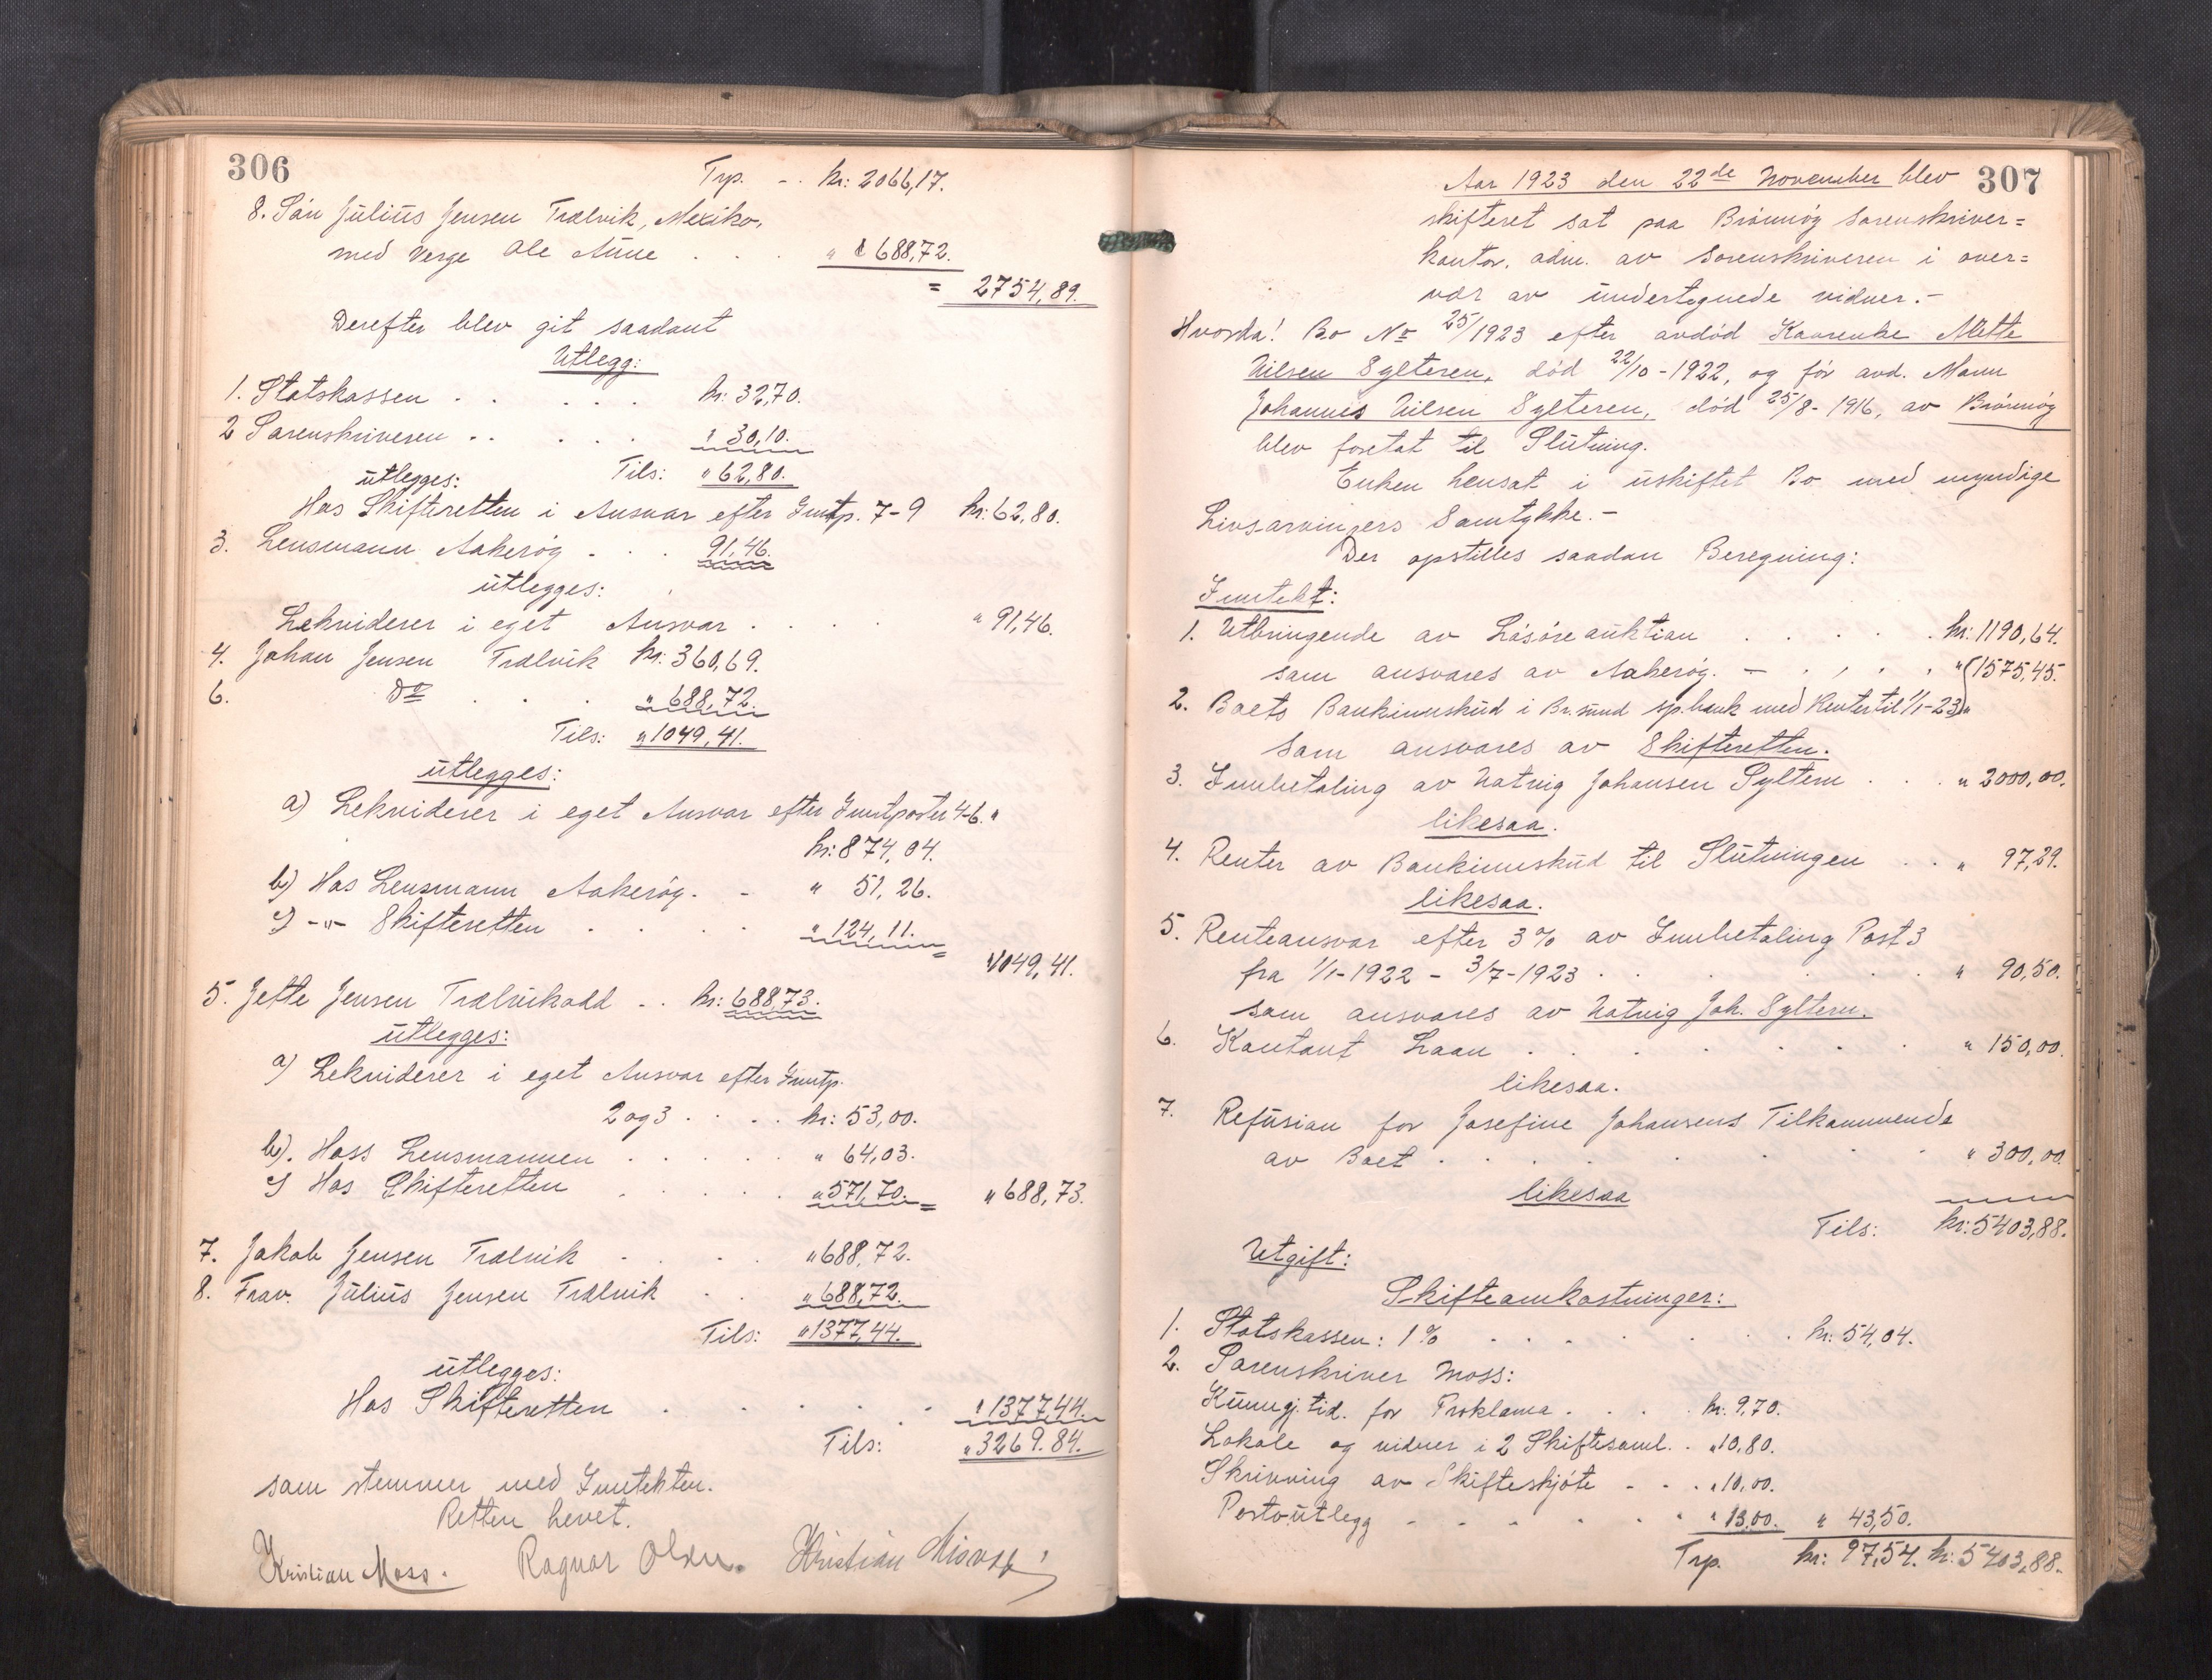 306
Trp. - . kr: 2066,17.
8. Sön Julius Jensen Trælvik, Mexiko,
med Verge Ole Aune . . . " 688,72.
= 2754,89.
Derefter blev git saadant
Utlegg:
1. Statskassen . . . . . kr: 32,70.
2 Sorenskriveren . . . . . " 30,10.
utlegges: Tils: " 62,80.
Hos Skifteretten i Ansvar efter Inntp. 7-9 kr: 62,80.
3. Lensmann Aakerøy - . . 91,46.
utlegges:
Lekviderer i eget Ansvar . . . . " 91,46.
4. Johan Jensen Trælvik kr: 360,69.
6. Do . . . " 688,72.
Tils: " 1049,41.
utlegges:
a) Lekviderer i eget Ansvar efter Inntposter 4-6. "
kr: 874,04.
b) Hos Lensmann Aakerøy. - " 51,26.
c) -"- Skifteretten . . . . " 124,11. =
" 1049,41.
5. Jette Jensen Trælvikodd - . kr: 688,73.
utlegges:
a) Lekviderer i eget Ansvar efter Inntp.
2 og 3 . . . . kr: 53,00.
b). Hoss Lensmannen . . . . . " 64,03.
c) Hos Skifteretten . . . . . " 571,70. = " 688,73.
7. Jakob Jensen Trælvik . . . . " 688,72.
8. Frav. Julius Jensen Trælvik . . " 688,72.
Tils: " 1377,44.
utlegges:
Hos Skifteretten . . . . . . " 1377,44.
Tils: " 3269.84.
som stemmer med Inntekten.
Retten hevet.
Kristian Moss. Ragnar Olsen. Kristian
307
Aar 1923 den 22de November blev
skifteret sat paa Brönnöy Sorenskriver=
kontor, adm. av Sorenskriveren i over=
vær av undertegnede vidner. -
Hvorda! Bo No 25/1923 efter avdöd Kaarenke Mette
Nilsen Sylteren, död 22/10 - 1922, og för avd. Mann
Johannes Nilsen Sylteren, död 25/8 - 1916, av Brönnöy
blev foretat til Slutning.
Enken hensat i uskiftet Bo med myndige
Livsarvingers Samtykke. -
Der opstilles saadan Beregning:
Inntekt:
1. Utbringende av Lösöreauktion . . . . . kr: 1190,64.
som ansvares av Aakerøy. - . . . . " (1575,45.
2. Boets Bankinnskud i Br.sund sp.bank med Renter til 1/1-23) "
som ansvares av Skifteretten.
3. Innbetaling av Natvig Johansen Syltern . . . " 2000,00.
likesaa.
4. Renter av Bankinnskud til Slutningen . . " 97,29.
likesaa.
5. Renteansvar efter 3% av Innbetaling Post 3
fra 1/1-1922 - 3/7-1923 . . . . . . " 90,50.
som ansvares av Natvig Joh. Syltern.
6. Kontant Laan . . . . . . . . " 150,00.
likesaa.
7. Refusion for Josefine Johansens Tilkommende
av Boet . . . . . . . . " 300,00.
likesaa
Tils: kr: 5403,88.
Utgift:
Skifteomkostninger:
1. Statskassen: 1% . . . . . . . kr: 54,04.
2. Sorenskriver Moss:
Kunngj. tid. for Proklama . . . . kr. 9,70.
Lokale og vidner i 2 Skiftesaml. . " 10,80.
Skrivning av Skifteskjöte - . . " 10,00.
Portoutlegg - - - . . . " 13.00. " 43,50.
Trp. kr: 97,54. kr: 5403,88.